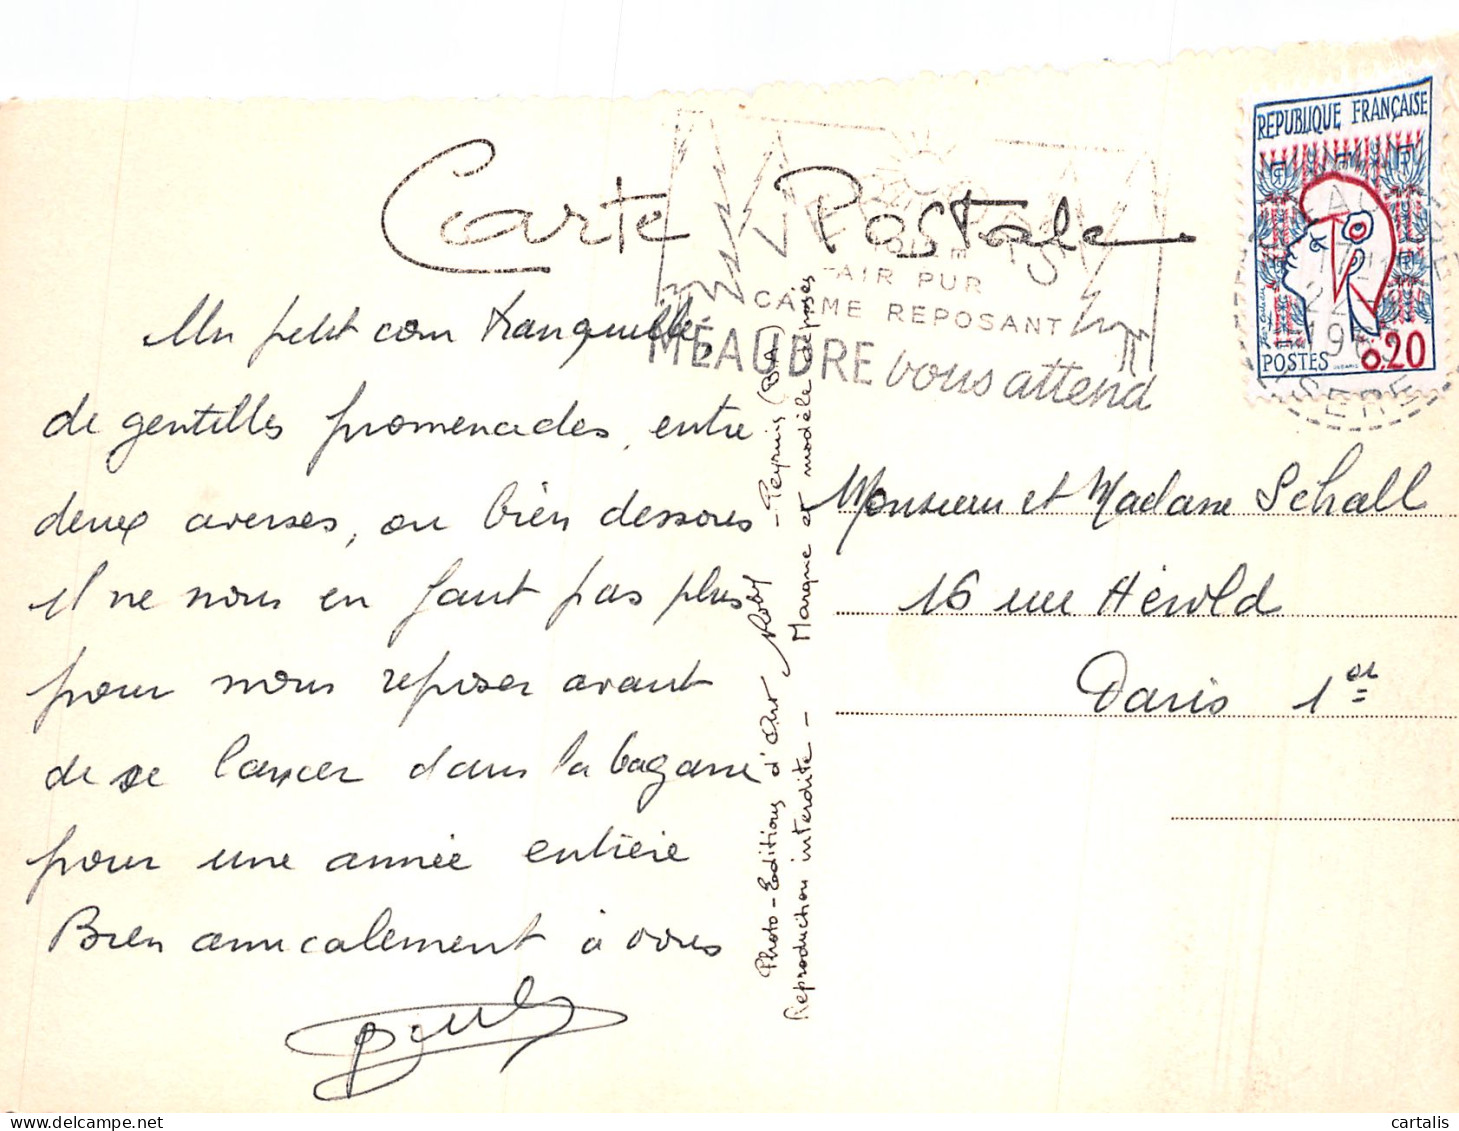 Carte Postale
AIR PUR
CALME REPOSANT
MÉAUDRE vous attend
REPUBLIQUE FRANÇAISE
POSTES 0,20
17H
22-
196
ISERE
Un petit coin tranquille,
de gentilles promenades, entre
deux averses, ou bien dessous
il ne nous en faut pas plus
pour nous reposer avant
de se lancer dans la bagarre
pour une année entière
Bien amicalement à vous
Photo-Editions d'Art Roby - Peyruis (B.A)
Reproduction interdite - Marque et modèle déposés
Monsieur et Madame Schall
16 rue Hérold
Paris 1er
cartalis